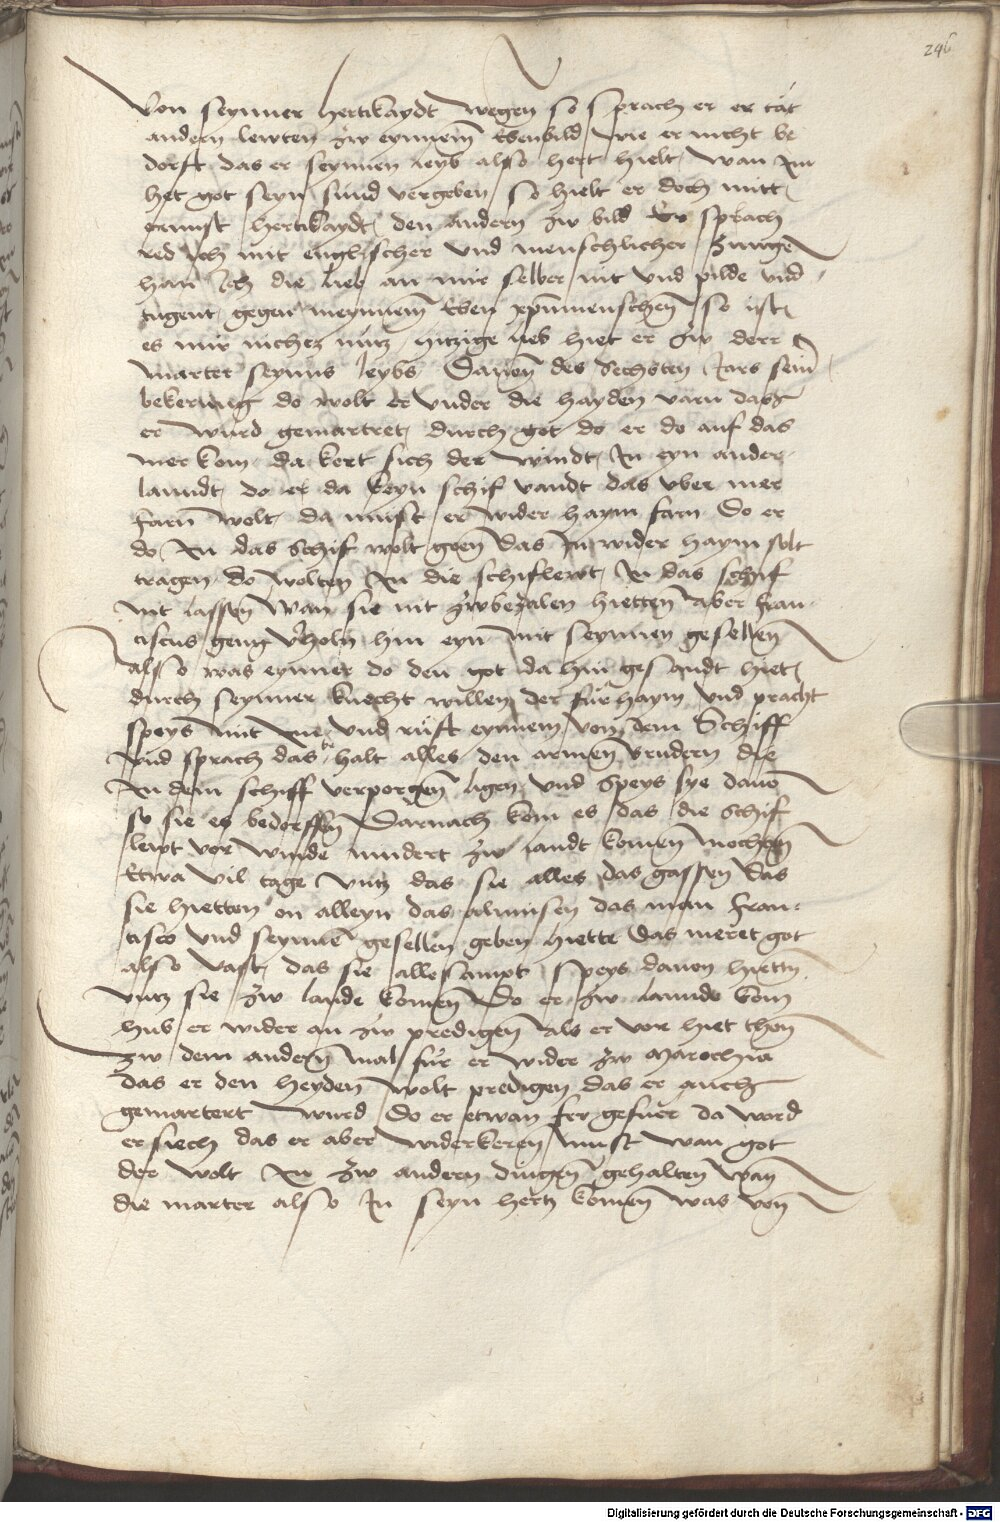 246
Von seynner hertikaydt wegen so sprach er er tät
andern lewten zw eynnem Ebenbild wie er nicht be
dorft das er seynnen leyb also hert hielt wan im
het got seyn sünd vergeben so hielt er doch mitt
ernnst hertikaydt den andern zw bild Er sprach
red ich mit englischer und menschlicher zungen
han ich die lieb an mir selber nit und pilde und
tugent gegen meynnem Eben xpenmenschen so ist
es mir nichcz nutz hitzige lieb hiet er zw derr
marter seynns leybs Davon des Sechsten Jars sein
bekerung do wolt er vnder die hayden varn das
er wurd gemartret durch got do er do auf das
mer kom da kert sich der windt in eyn ander
lanndt do er da keyn schif vandt das vber mer
farn wolt da must er wider haym farn Do er
do in das Schif wolt geen das in wider haym solt
tragen do wolten in die schiflewt in das schif
nit lassen wan sie nit zwbezalen hietten aber fran
ciscus geng v̓holn hin eyn mit seynnen gesellen
also was eynner do den got da hin gesandt hiet
durch seynner knecht willen der fur haym und pracht
speys mit ime und rüfft eynnem von dem Schiff
und sprach das halt alles den armen brudern die
in dem schiff verporgen ligen und speys sye davon
so sie es bedorffen Darnach kom es das die schif
lewt vor winde nindert zw landt komen mochten
Etwa vil tage vntz das sie alles das gassen das
sie hietten on alleyn das almusen das man fran-
cisco und seynnen gesellen geben hiette das meret got
also vast das sie allesampt speys davon hietten
vntz sie zw lande komen Do er zw lannde kom
hub er wider an zw predigen als er vor hiet thon
zw dem andern mal für er wider zw Marochia
das er den heyden wolt predigen das er auch
gemartert wurd Do er etwan fer gefuer da ward
er siech das er aber widerkeren must wan got
der wolt in zw andern dingen gehalten wan
die marter also in seyn hertz komen was von
Digitalisierung gefördert durch die Deutsche Forschungsgemeinschaft - DFG